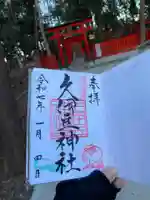 奉拝
久伊豆神社
令和七年一月四日